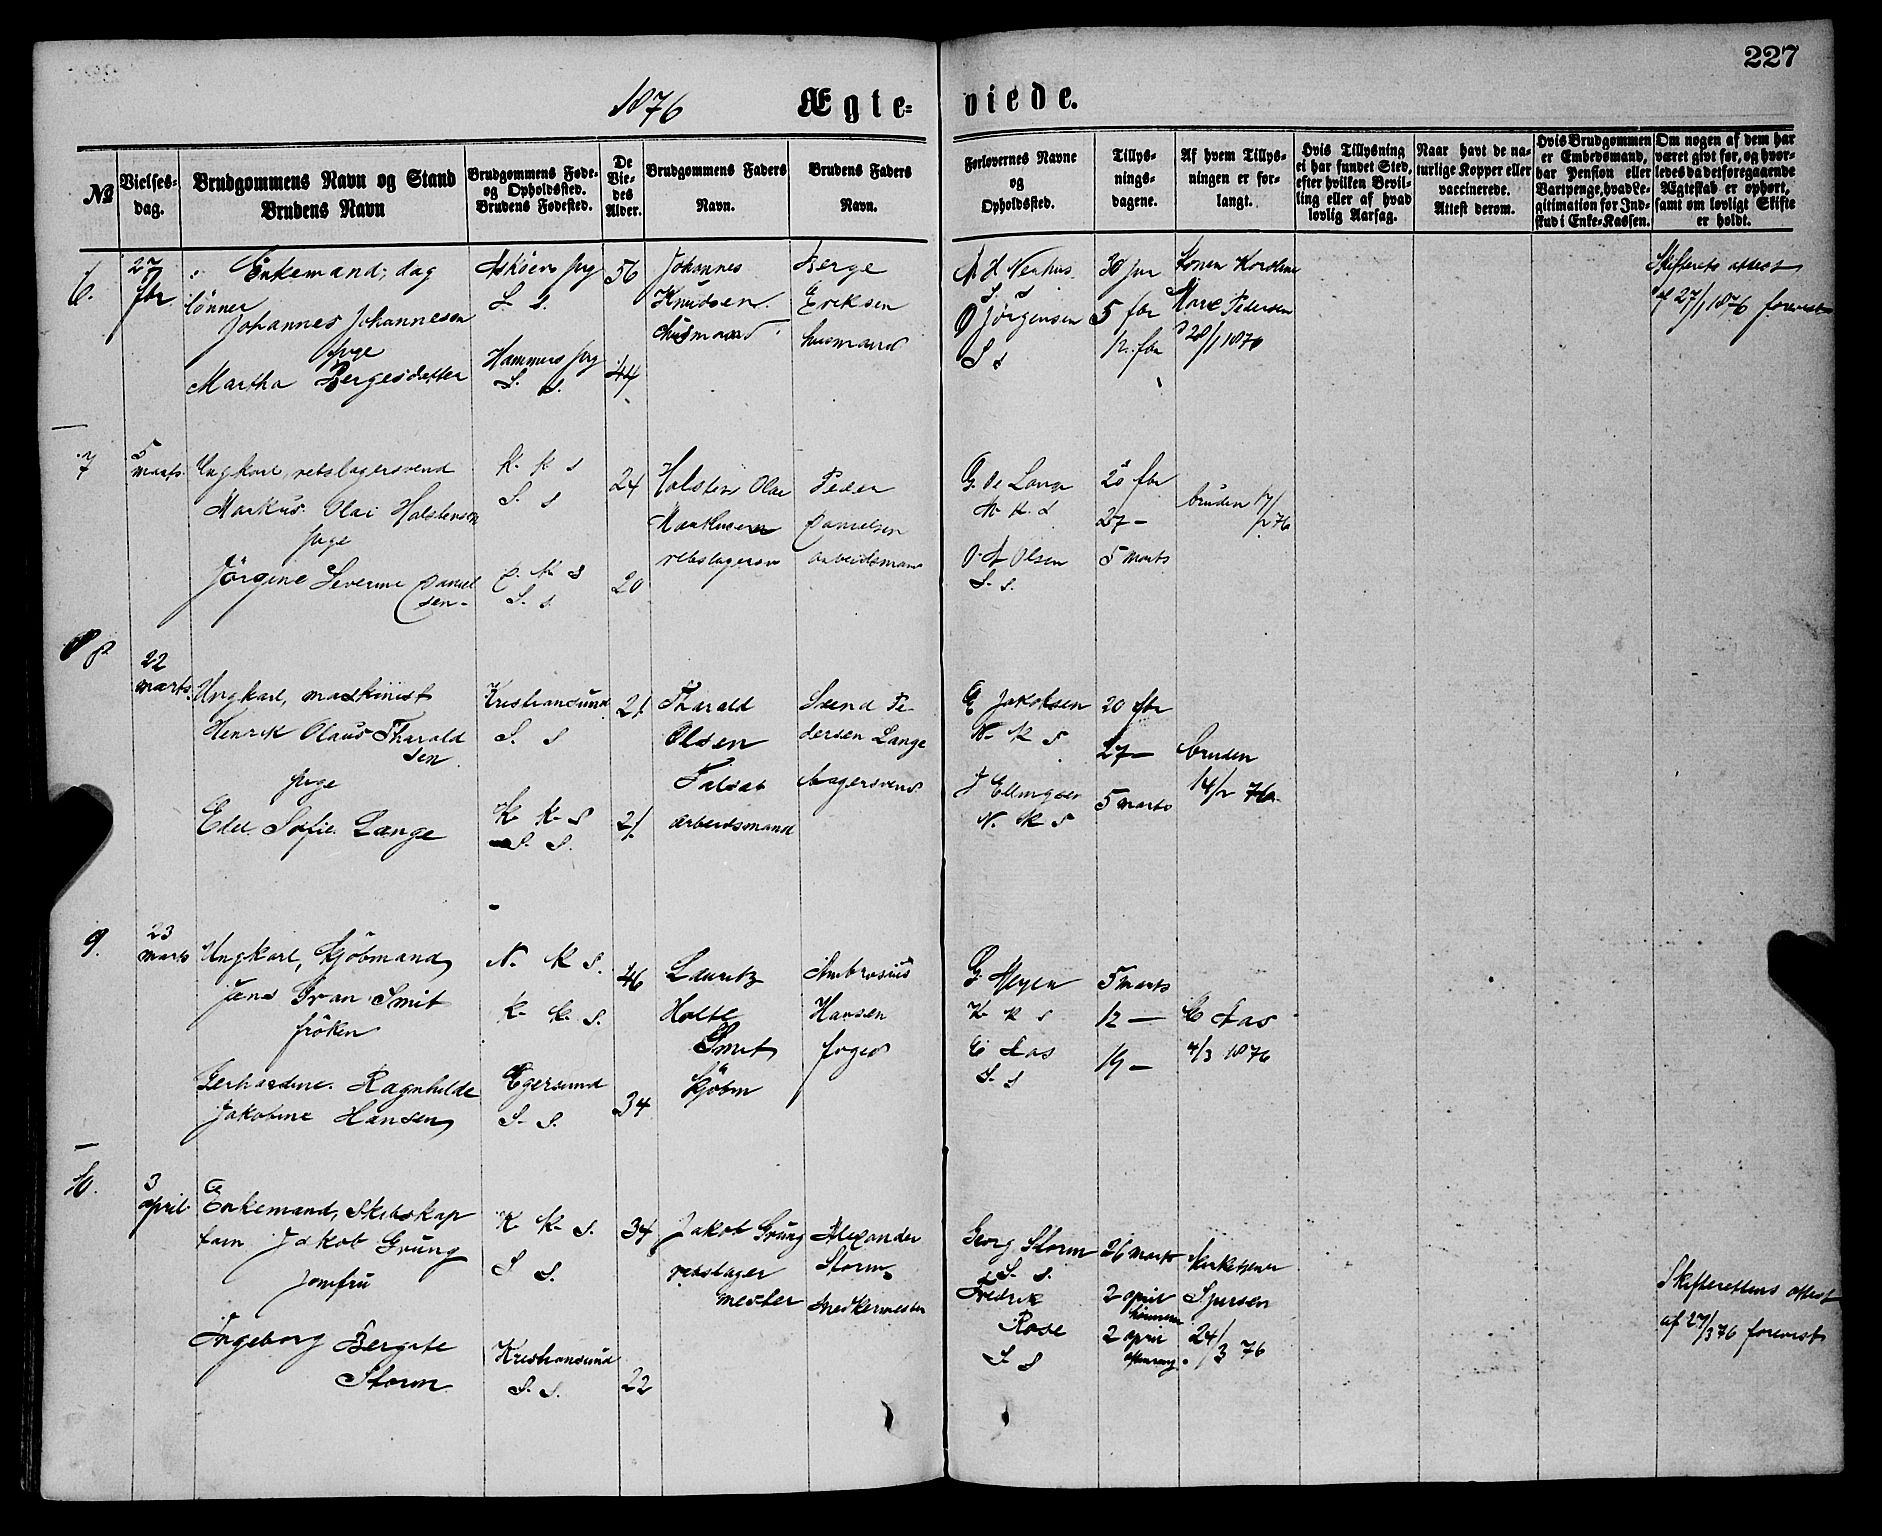 227
1876 Ægte=viede.
№
Vielses-
dag.
Brudgommens Navn og Stand
Brudens Navn
Brudgommens Føde-
og Opholdssted.
Brudens Fødested.
De
Vie-
des
Alder.
Brudgommens Faders
Navn.
Brudens Faders
Navn.
Forlovernes Navne
og
Opholdssted.
Tillys-
nings-
dagene.
Af hvem Tillys-
ningen er for-
langt.
Hvis Tillysning
ei har fundet Sted,
efter hvilken Bevil-
ling eller af hvad
lovlig Aarsag.
Naar havt de na-
turlige Kopper eller
vaccinerede.
Attest derom.
Hvis Brudgommen
er Embedsmand,
har Pension eller
Vartpenge, hvad Le-
gitimation for Ind-
skud i Enke-Kassen.
Om nogen af dem har
været givt før, og hvor-
ledes da det foregaaende
Ægteskab er ophørt,
samt om lovligt Skifte
er holdt.
6.
27
fbr
Enkemand, dag
lönner
Johannes Johannesen
pige
Martha Bergesdatter
Askøen prg
S. S.
Hammers prg
S. S.
56
44
Johannes
Knudsen
husmand
Berge
Eriksen
husmand
S S
O Jörgensen
S s
30 jnr
5 fbr
12 fbr
Konen Karoline
Marie Pedersen
28/1 1876
Skifterets attest
af 27/1 1876 forevist
7
5
marts
Ungkarl, rebslagersvend
Markus Olai Holstensen
pige
Jörgine Severine Daniel
sen
K. K S
S. s
K S
S. s
24
20
Holsten Olai
Markusen
rebslagersv
Peder
Danielsen
arbeidsmand
G. de Lange
N. K. S
O A Olsen
S. s.
20 fbr
27 —
5 marts
bruden 17/2 76
8
22
marts
Ungkarl, maskinist
Henrik Olaus Tharald
sen
pige
Edel Sofie Lange
Kristiansund
S. S
K. K. S
S. S.
21
21
Tharald
Olsen
arbeidsmand
Svend Pe-
dersen Lange
bagersvend
E Jakobsen
N. K S
J Ellingsen
N. K S
20 fbr
27 —
5 marts
bruden
14/2 76
9.
23
marts
Ungkarl, kjöbmand
Jens Ivan Smit
fröken
Gerhardine Ragnhilde
Jakobine Hansen
N. K S.
K. K. S.
Egersund
S. S.
46
34
Lauritz
Holte
Smit
kjöbm
Ambrosius
Hansen
foged
G. Meyer
K. K S
E Aas
S. S
5 marts
12 —
19 —
E Aas
4/3 1876
10.
3
april
Enkemand, Skibskap
tain Jakob Grung
jomfru
Ingeborg Bergite
Storm
K. K. S.
S S.
Kristiansund
S. S.
34
22
Jakob Grung
rebslager
mester
Alexander
Storm
snedkermester
Georg Storm
S. S.
Fredrik
Rose
S S
26 marts
2 april
2 april
aftensang
Kirketjener
Spersen
24/3 76
Skifterettens attest
af 27/3 76 forevist